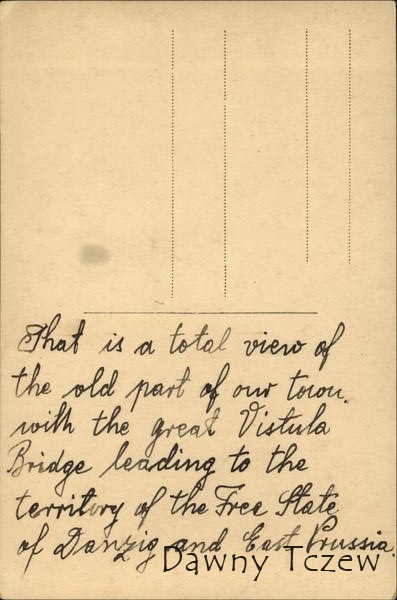 That is a total view of
the old part of our town.
with the great Vistula
Bridge leading to the
territory of the Free State
of Danzig and East Prussia.
Dawny Tczew